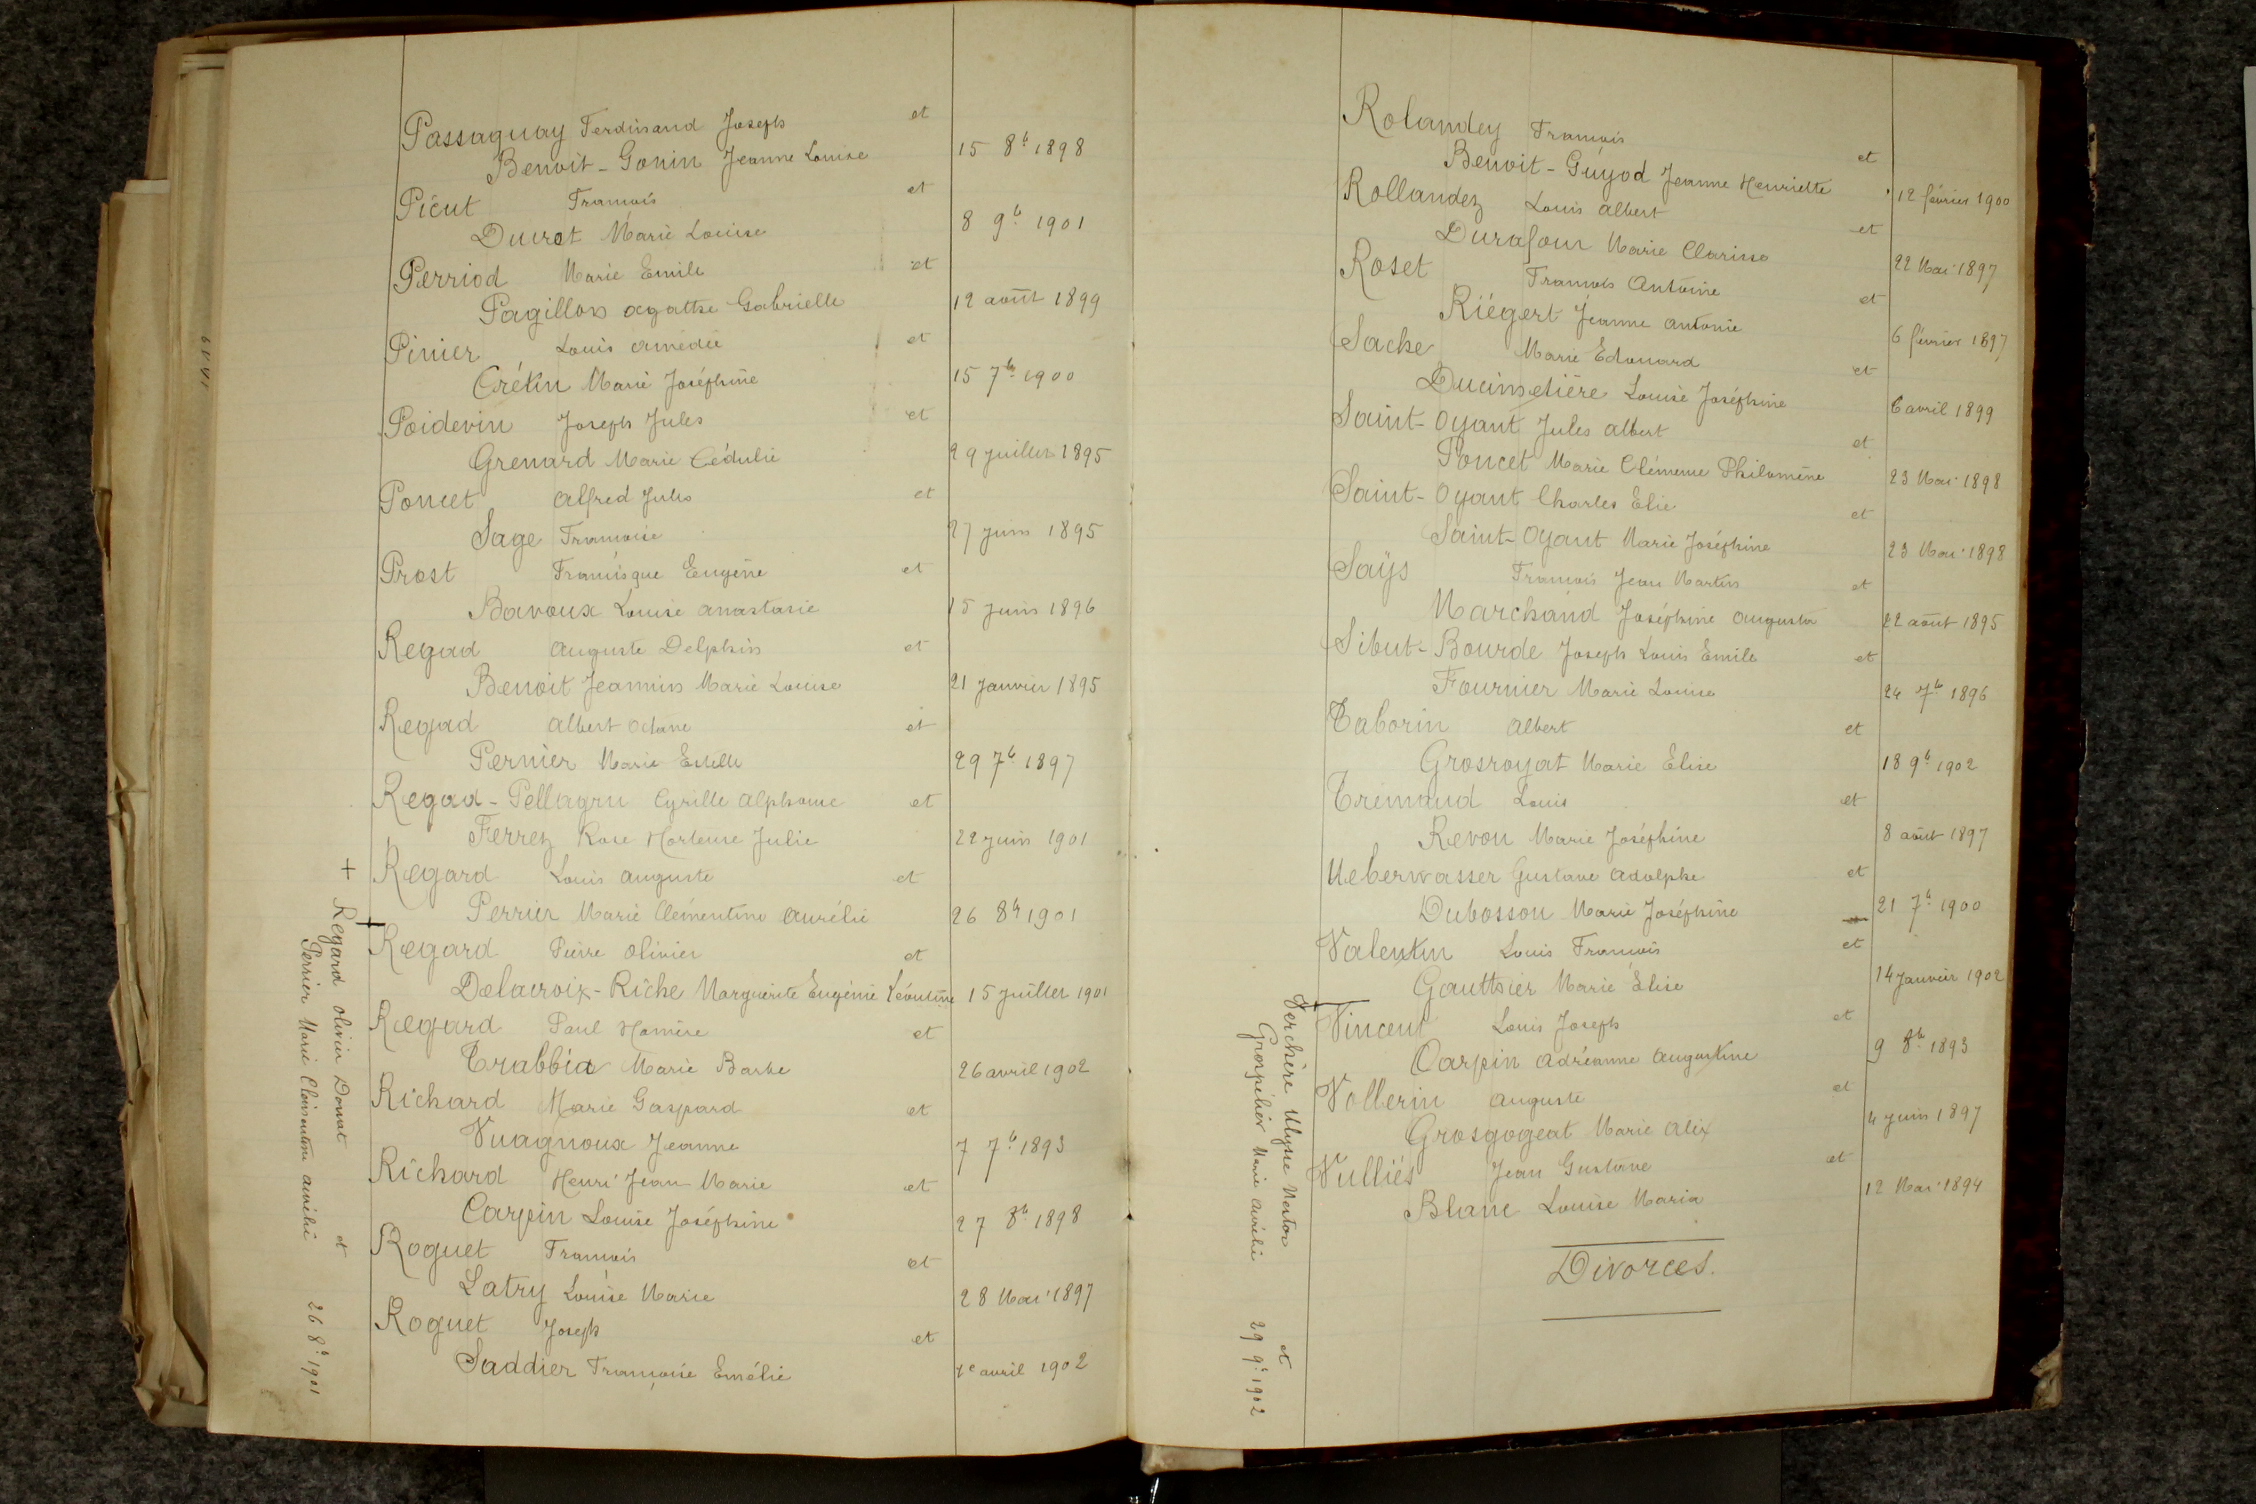 Passaquay Ferdinand Joseph et
Benoit-Gonin Jeanne Louise 15 8b 1898
Picut François et
Ducrot Marie Louise 8 9b 1901
Perriod Marie Emile et
Pagillon Agathe Gabrielle 12 août 1899
Pinier Louis Amédée et
Crétin Marie Joséphine 15 7b 1900
Poidevin Joseph Jules et
Grenard Marie Cédulie 29 juillet 1895
Poncet Alfred Jules et
Sage Françoise 27 juin 1895
Prost Francisque Eugène et
Bavoux Louise Anastasie 15 juin 1896
Regad Auguste Delphin et
Benoit Jeannin Marie Louise 21 Janvier 1895
Regad Albert Octave et
Pernier Marie Estelle 29 7b 1897
Regad-Pellagru Cyrille Alphonse et
Ferrez Rose Hortense Julie 22 juin 1901
+ Regard Louis Auguste et
Perrier Marie Clémentine Aurélie 26 8b 1901
Regard Pierre Olivier et
Delacroix-Riche Marguerite Eugénie Léontine 15 juillet 1901
Regard Paul Homère et
Trabbia Marie Barbe 26 avril 1902
Richard Marie Gaspard et
Vuagnoux Jeanne 7 7b 1893
Richard Henri Jean Marie et
Carpin Louise Joséphine 27 8b 1898
Roguet François et
Latry Louise Marie 28 Mai 1897
Roguet Joseph et
Saddier Françoise Emélie 1e avril 1902
+ Regard Olivier Donat et
Perrier Marie Clémentine Aurélie 26 8b 1901
Rolandey François et
Benoit-Guyod Jeanne Henriette 12 février 1900
Rollandez Louis Albert et
Durafour Marie Clarisse 22 Mai 1897
Roset François Antoine et
Riégert Jeanne Antonie 6 février 1897
Sache Marie Edouard et
Ducimetière Louise Joséphine 6 avril 1899
Saint-Oyant Jules Albert et
Poncet Marie Clémence Philomène 23 Mai 1898
Saint-Oyant Charles Elie et
Saint-Oyant Marie Joséphine 23 Mai 1898
Saÿs François Jean Martin et
Marchand Joséphine Augusta 22 août 1895
Sibut-Bourde Joseph Louis Emile et
Fournier Marie Louise 24 7b 1896
Taborin Albert et
Grosroyat Marie Elise 18 9b 1902
Trémaud Louis et
Revon Marie Joséphine 8 août 1897
Ueberwasser Gustave Adolphe et
Dubosson Marie Joséphine 21 7b 1900
Valentin Louis François et
Gauthier Marie Élise 14 Janvier 1902
Vincent Louis Joseph et
Carpin Adréanne Augustine 9 8b 1893
Vollerin Auguste et
Grosgogeat Marie Alix 4 juin 1897
Vulliés Jean Gustave et
Blanc Louise Maria 12 Mai 1894
Divorces.
+ Verchère Ulysse Nestor et
Grospélier Marie Aurélie 29 9b 1902